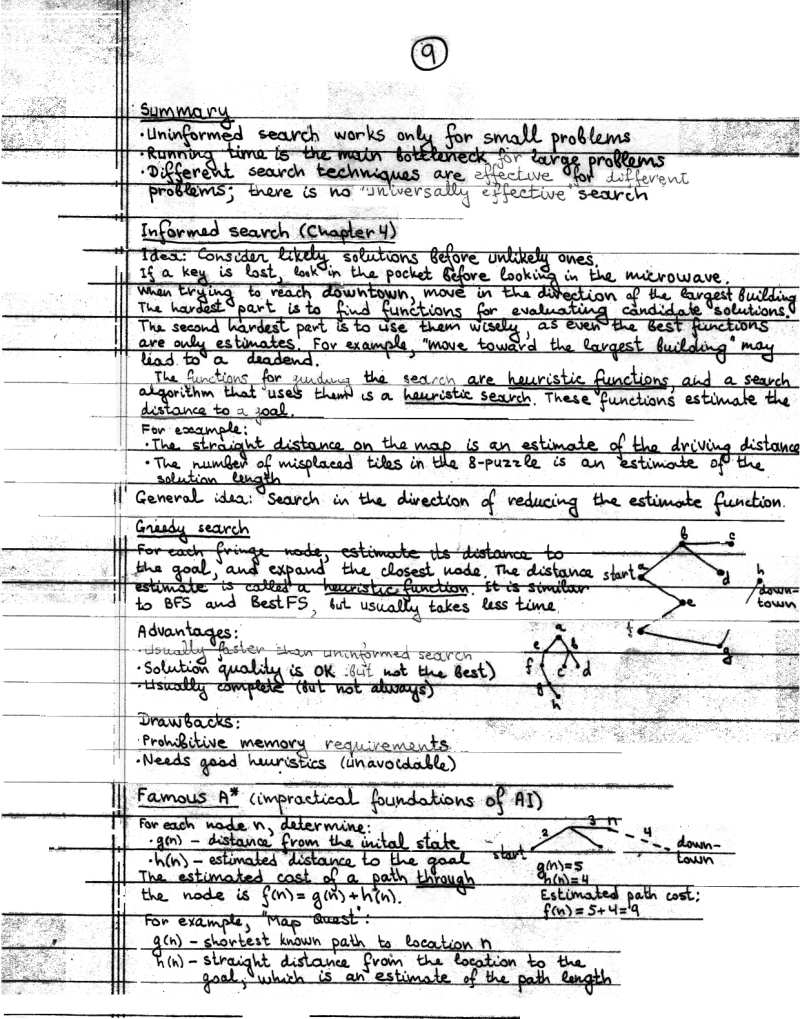 9
Summary
·Uninformed search works only for small problems
·Running time is the main bottleneck for large problems
·Different search techniques are effective for different
problems; there is no "universally effective" search
Informed search (Chapter 4)
Idea: Consider likely solutions before unlikely ones.
If a key is lost, look in the pocket before looking in the microwave.
When trying to reach downtown, move in the direction of the largest building
The hardest part is to find functions for evaluating candidate solutions.
The second hardest part is to use them wisely, as even the best functions
are only estimates. For example, "move toward the largest building" may
lead to a deadend.
The functions for guiding the search are heuristic functions, and a search
algorithm that uses them is a heuristic search. These functions estimate the
distance to a goal.
For example:
·The straight distance on the map is an estimate of the driving distance
·The number of misplaced tiles in the 8-puzzle is an estimate of the
solution length
General idea: Search in the direction of reducing the estimate function.
Greedy search
For each fringe node, estimate its distance to
the goal, and expand the closest node. The distance
estimate is called a heuristic function. It is similar
to BFS and BestFS, but usually takes less time.
b c
start a d h
down-
town
e
f
g
Advantages:
·Usually faster than uninformed search
·Solution quality is OK (but not the best)
·Usually complete (but not always)
a
e b
f c d
g
h
Drawbacks:
·Prohibitive memory requirements
·Needs good heuristics (unavoidable)
Famous A* (impractical foundations of AI)
For each node n, determine:
·g(n) – distance from the inital state
·h(n) – estimated distance to the goal
The estimated cost of a path through
the node is f(n) = g(n) + h(n).
start 2 3 n 4 down-
town
g(n)=5
h(n)=4
Estimated path cost:
f(n) = 5+4=9
For example, "Map Quest":
g(n) – shortest known path to location n
h(n) – straight distance from the location to the
goal, which is an estimate of the path length